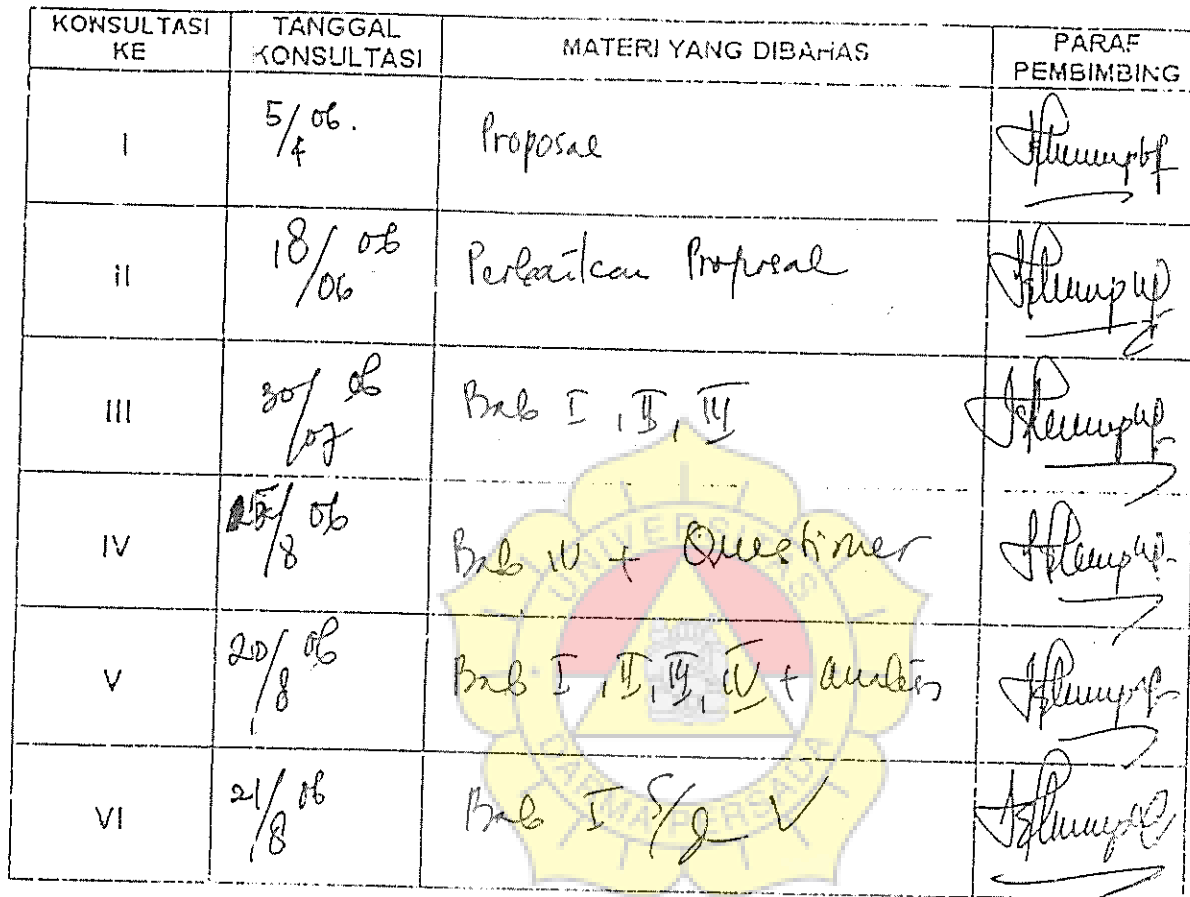 KONSULTASI KE
TANGGAL KONSULTASI
MATERI YANG DIBAHAS
PARAF PEMBIMBING
I
5/4 06.
Proposal
II
18/06 06
Perbaikan Proposal
III
30/07 06
Bab I, II, III
IV
/8 06
Bab IV + Questioner
V
20/8 06
Bab I, II, III, IV + analisis
VI
21/8 06
Bab I s/d V
UNIVERSITAS
DARMA PERSADA